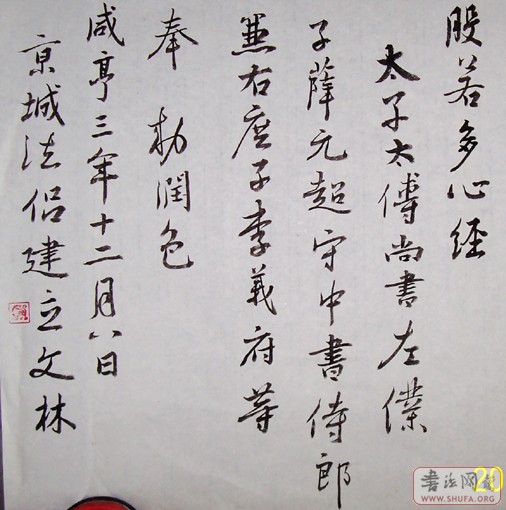 股若多心经
太子太傅尚書左僕
子薛元超守中書侍郎
兼右庶子李義府等
奉 勅潤色
咸亨三年十二月八日
京城法侣建立文林
書法网
WWW.SHUFA.ORG
20